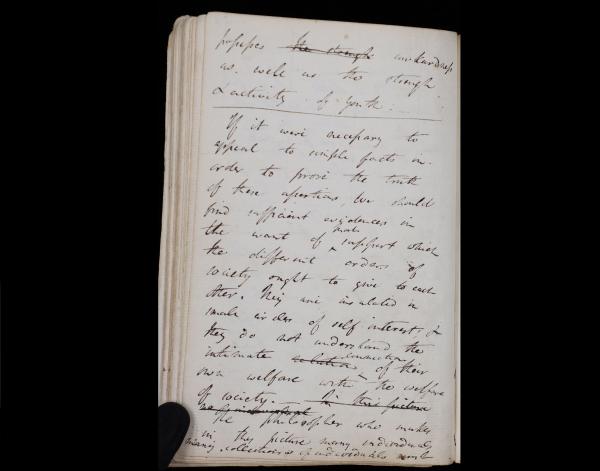 possesses the strength awkwardness
as well as the strength
& activity of youth. —
If it were necessary to
appeal to simple facts in
order to prove the truth
of these assertions, we should
find sufficient evidences in
the want of that support which
the different orders of
society ought to give to each
other. They are insulated in
small circles of self interests &
they do not understand the
intimate relation connection of their
own welfare with the welfare
of society. — In this picture
the philosopher who makes
in this picture many individuals
many collections of individuals